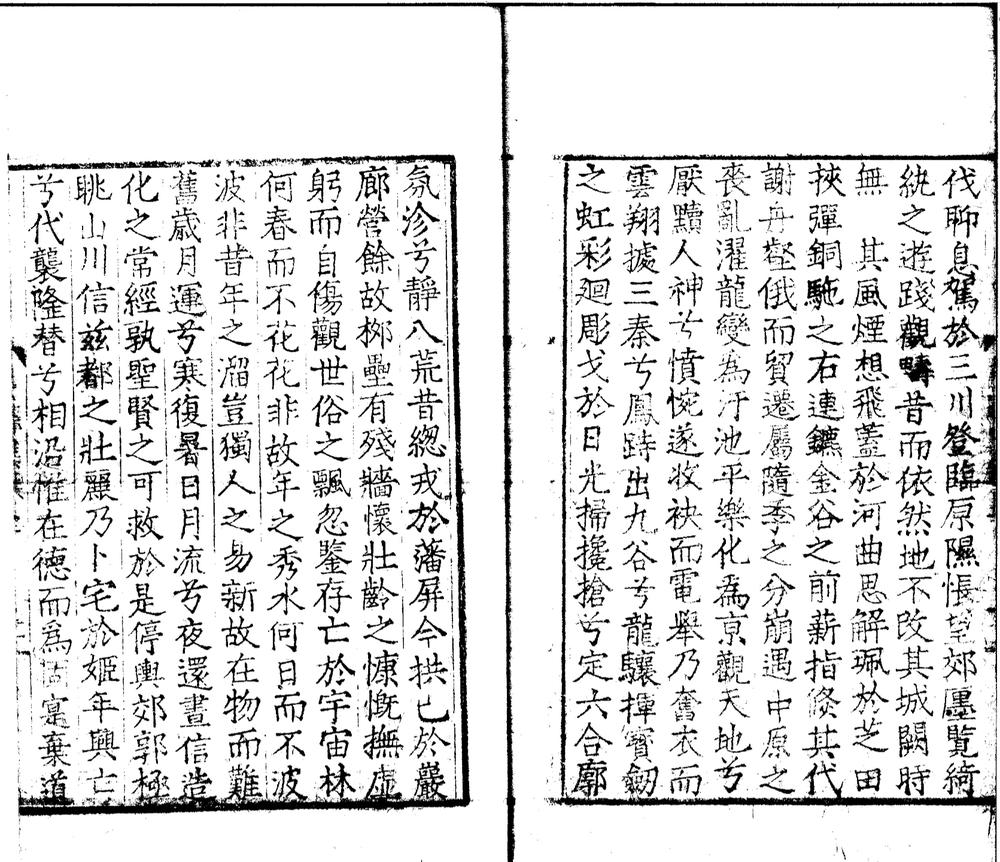 伐聊息駕於三川登臨原隰悵望郊廛覽綺
紈之遊踐觀疇昔而依然地不改其城闕時
無　其風煙想飛蓋於河曲思解珮於芝田
挾彈銅駞之右連鑣金谷之前薪指倏其代
謝舟壑俄而貿遷屬隨季之分崩遇中原之
喪亂濯龍變為汙池平樂化為京觀天地兮
厭黷人神兮憤惋遂收袂而電舉乃奮衣而
雲翔據三秦兮鳳跱出九谷兮龍驤揮寶劒
之虹彩廻彫戈於日光掃攙搶兮定六合廓
氛沴兮靜八荒昔總戎於藩屏今拱已於巖
廊營餘故柳壘有殘牆懷壯齡之慷慨撫虛
躬而自傷觀世俗之飄忽鑒存亡於宇宙林
何春而不花花非故年之秀水何日而不波
波非昔年之溜豈獨人之易新故在物而難
舊歲月運兮寒復暑日月流兮夜還晝信造
化之常經孰聖賢之可救於是停輿郊郭極
眺山川信兹都之壯麗乃卜宅於姬年興亡
兮代襲隆替兮相沿惟在德而為固寔棄道